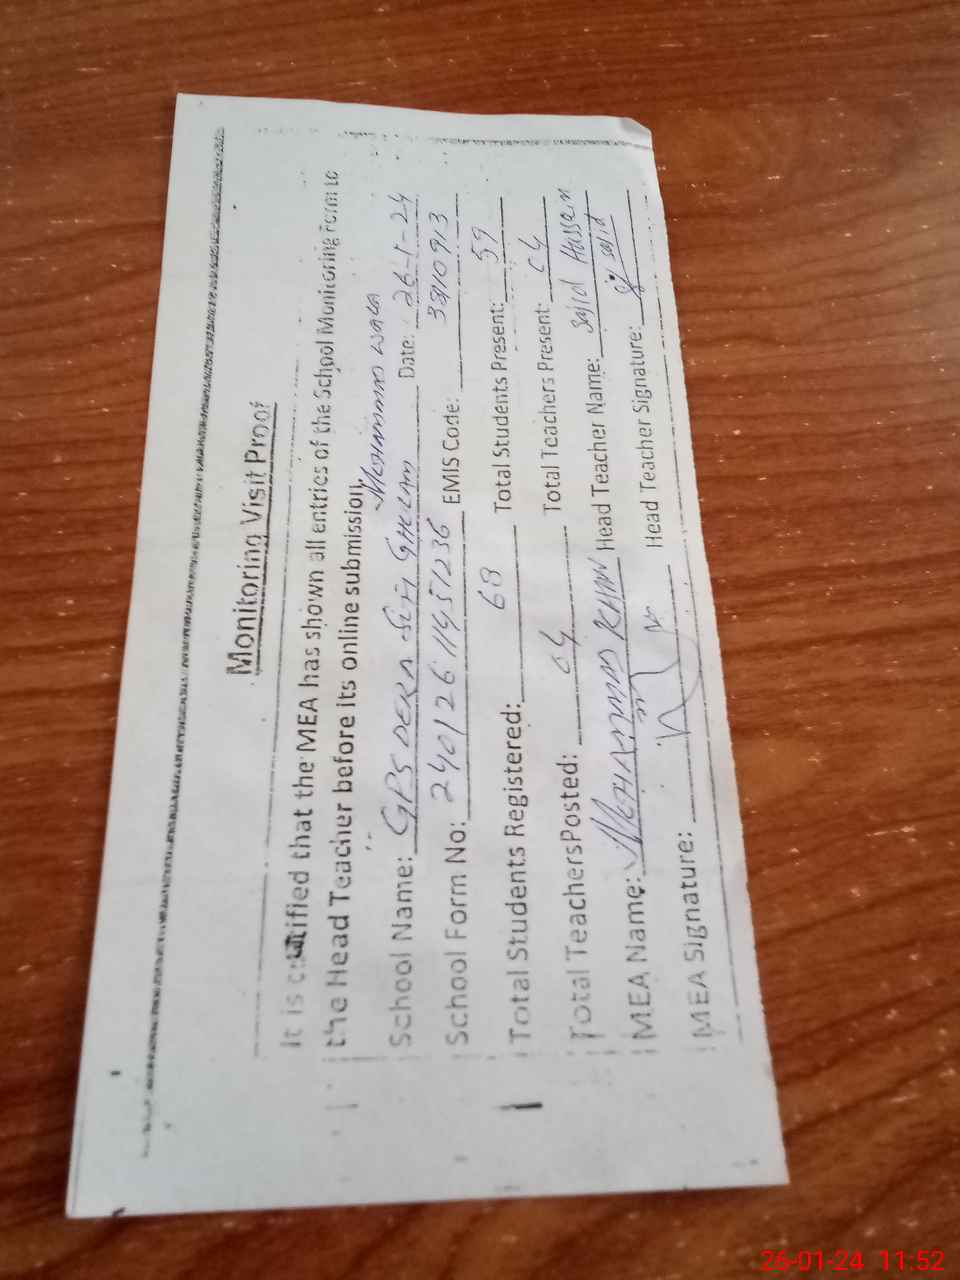 Monitoring Visit Proof
It is certified that the MEA has shown all entries of the School Monitoring Form to
the Head Teacher before its online submission.
School Name: GPS DERA Sufi GHULAM MOHAMMAD WALA Date: 26-1-24
School Form No: 24012611451236 EMIS Code: 33110913
Total Students Registered: 68 Total Students Present: 59
Total Teachers Posted: 04 Total Teachers Present: 04
MEA Name: MOHAMMAD KHAN Head Teacher Name: Sajid Hussain
MEA Signature: Head Teacher Signature: Sajid
26-01-24 11:52